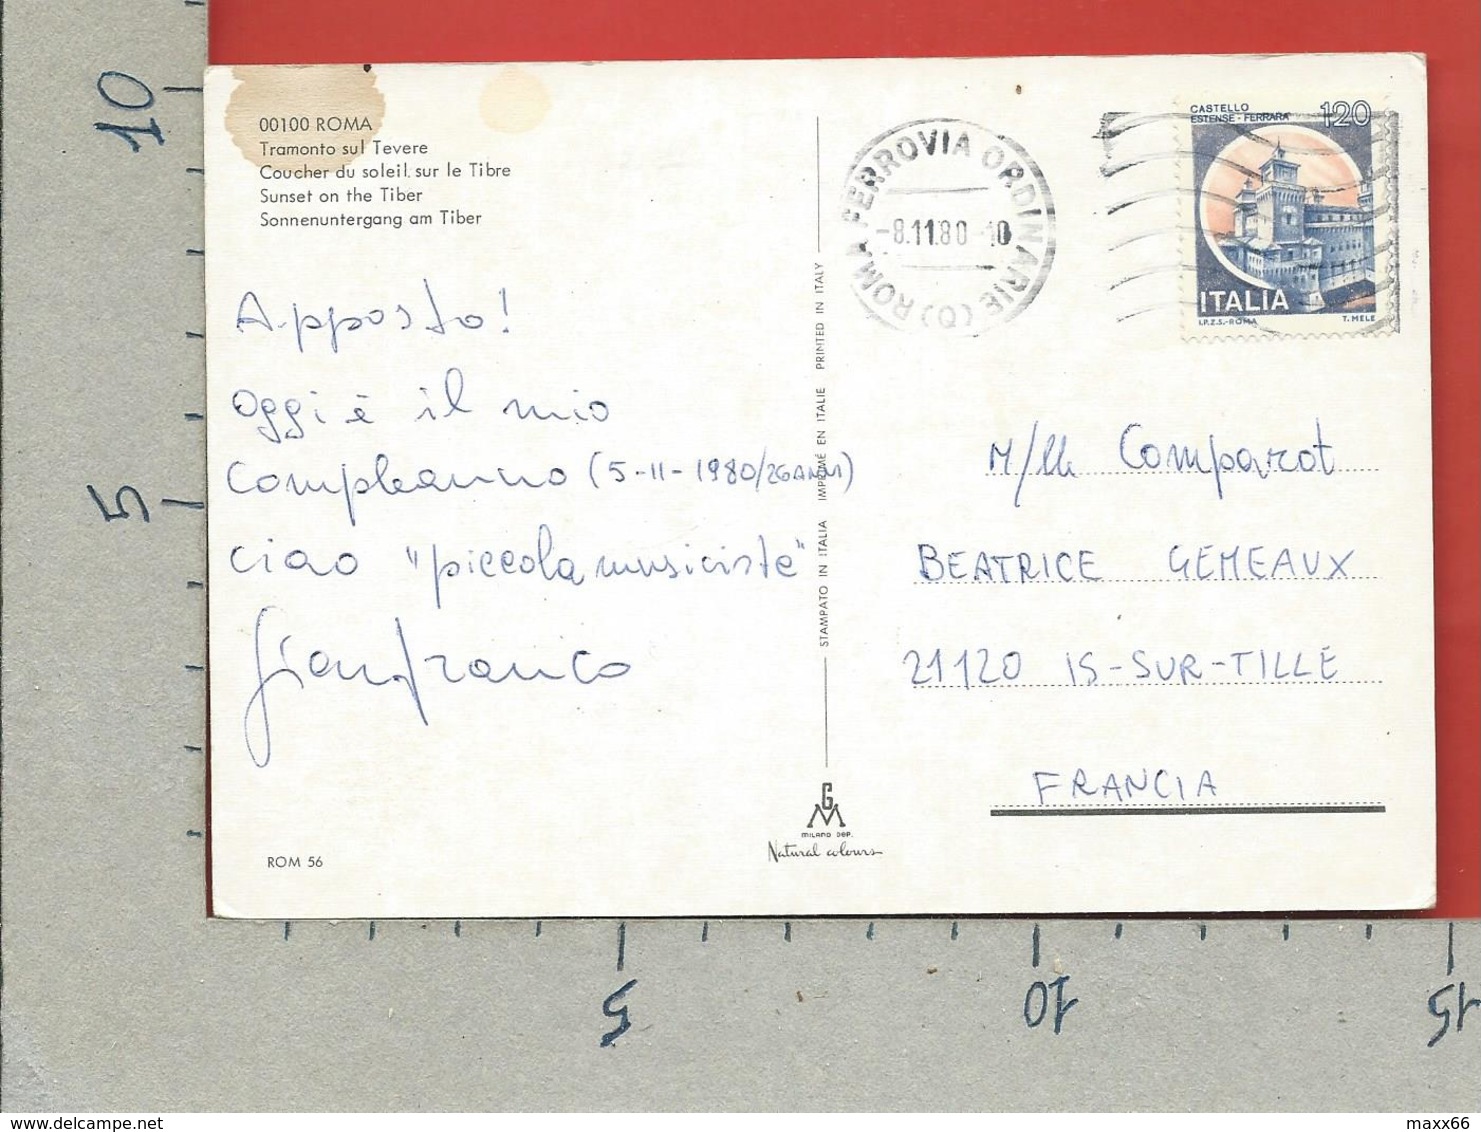 00100 ROMA
Tramonto sul Tevere
Coucher du soleil sur le Tibre
Sunset on the Tiber
Sonnenuntergang am Tiber
Apposto!
Oggi è il mio
compleanno (5-11-1980/26 ANNI)
ciao "piccola musiciste"
Gianfranco
ROM 56
STAMPATO IN ITALIA IMPRIMÉ EN ITALIE PRINTED IN ITALY
GM
MILANO DEP.
Natural colours
ROMA FERROVIA ORDINARIE (O)
-8.11.80-10
CASTELLO
ESTENSE - FERRARA
120
ITALIA
I.P.Z.S. - ROMA T. MELE
M/lle Comparot
BEATRICE GEMEAUX
21120 IS-SUR-TILLE
FRANCIA
10
5
5
10
15
www.delcampe.net
maxx66